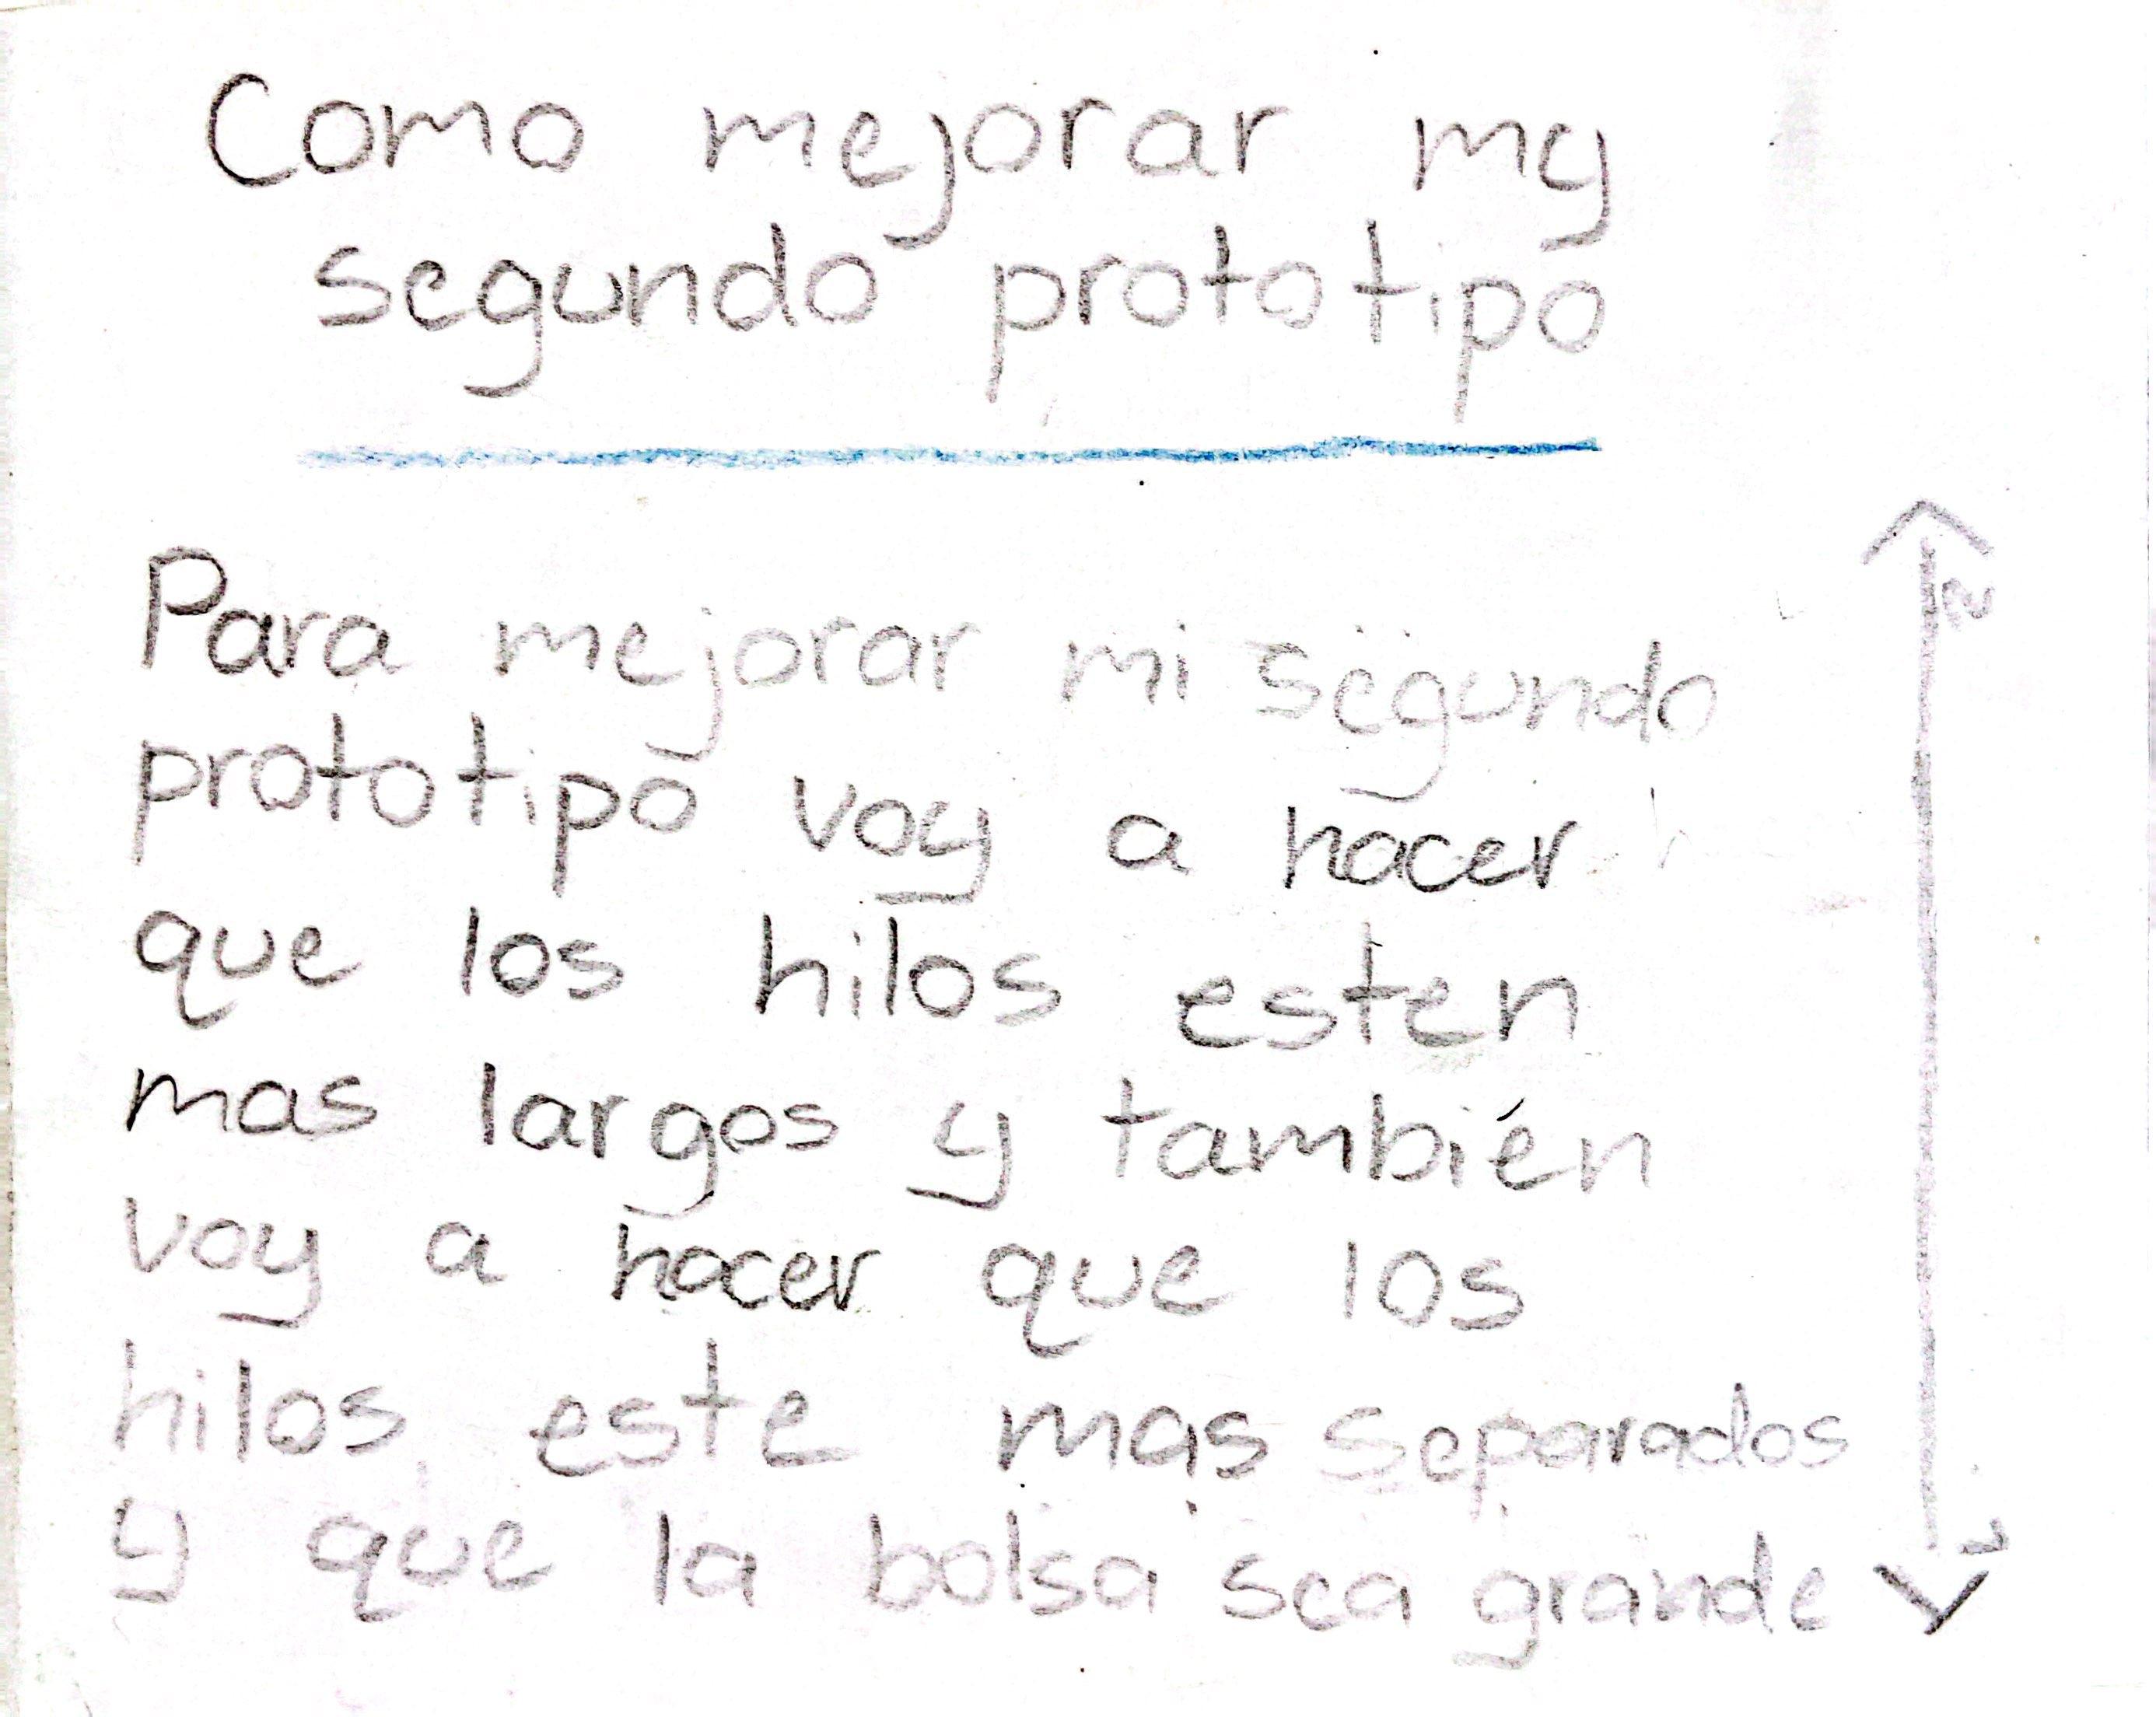 Como mejorar my
segundo prototipo
Para mejorar mi segundo
prototipo voy a hacer
que los hilos esten
mas largos y también
voy a hacer que los
hilos este mas separados
y que la bolsa sea grande